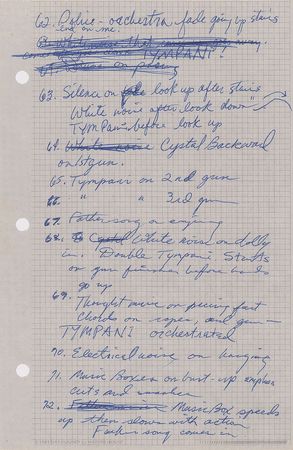 62. Police - orchestra fade going up stairs
end on me.
TYMPANI?
63. Silence on look up after stairs
White noise after look down
TYMPANI before look up
64. Crystal Backward
on 1st gun.
65. Tympani on 2nd gun
66. " " 3rd gun
67. Father song on
68. White noise on dolly
in. Double Tympani Starts
on gun before hands
go up
69. Thought music on
chords on rapes, and gun —
TYMPANI orchestrated
70. Electrical noise on hanging
71. Music Boxes on bust-up
cuts and
72. Music Box speeds
up then slows with action
Father song comes in